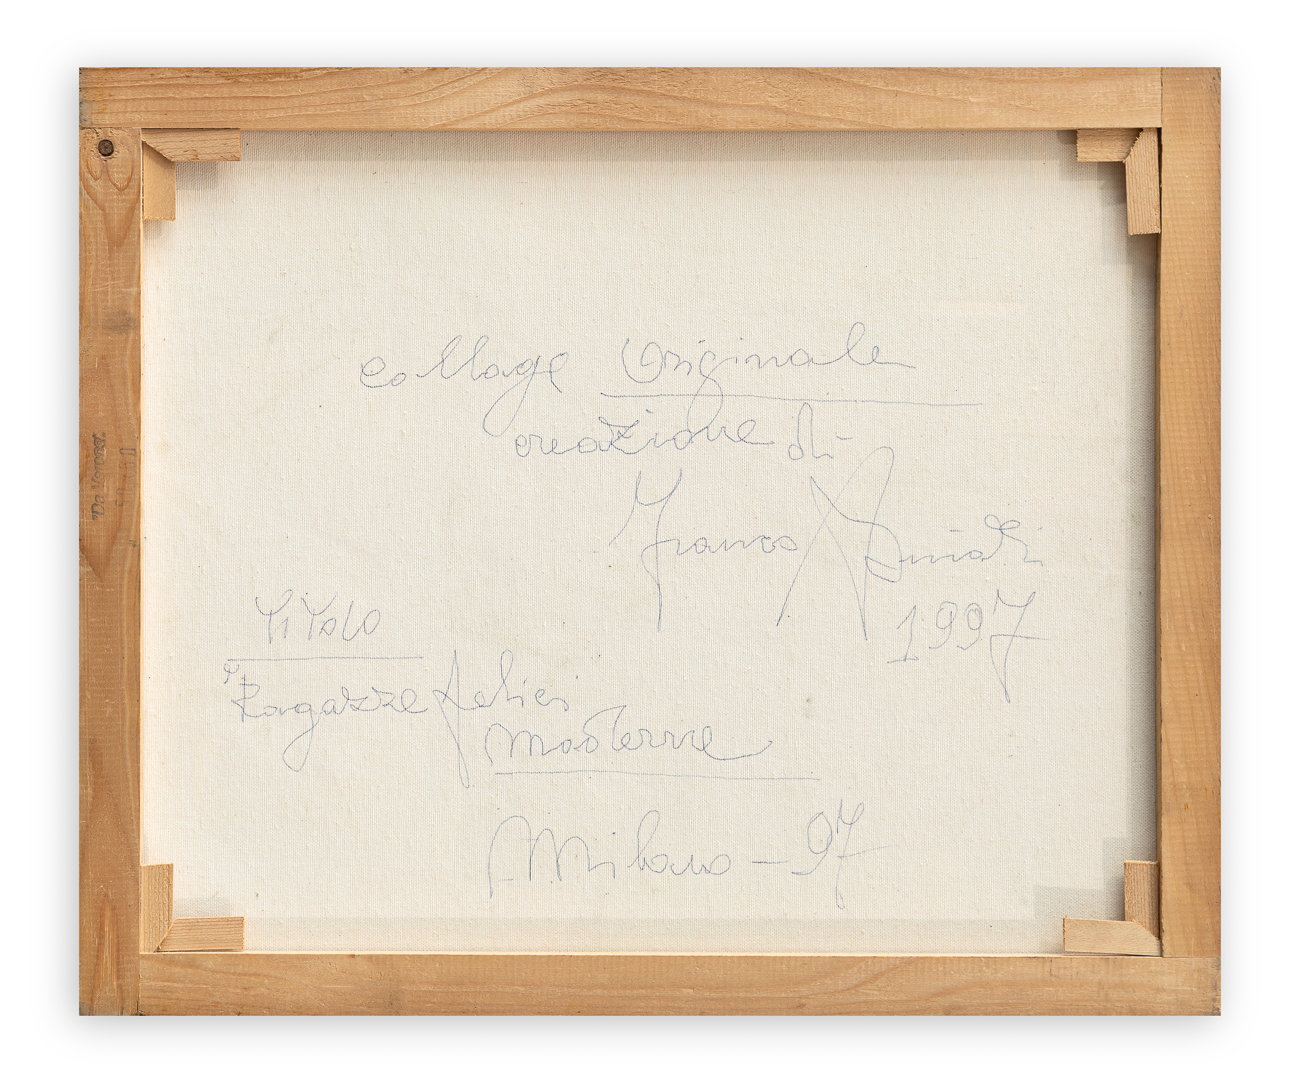 Collage Originale
creazione di
Franco
1997
Titolo
"Ragazze felici
moderne
Milano - 97